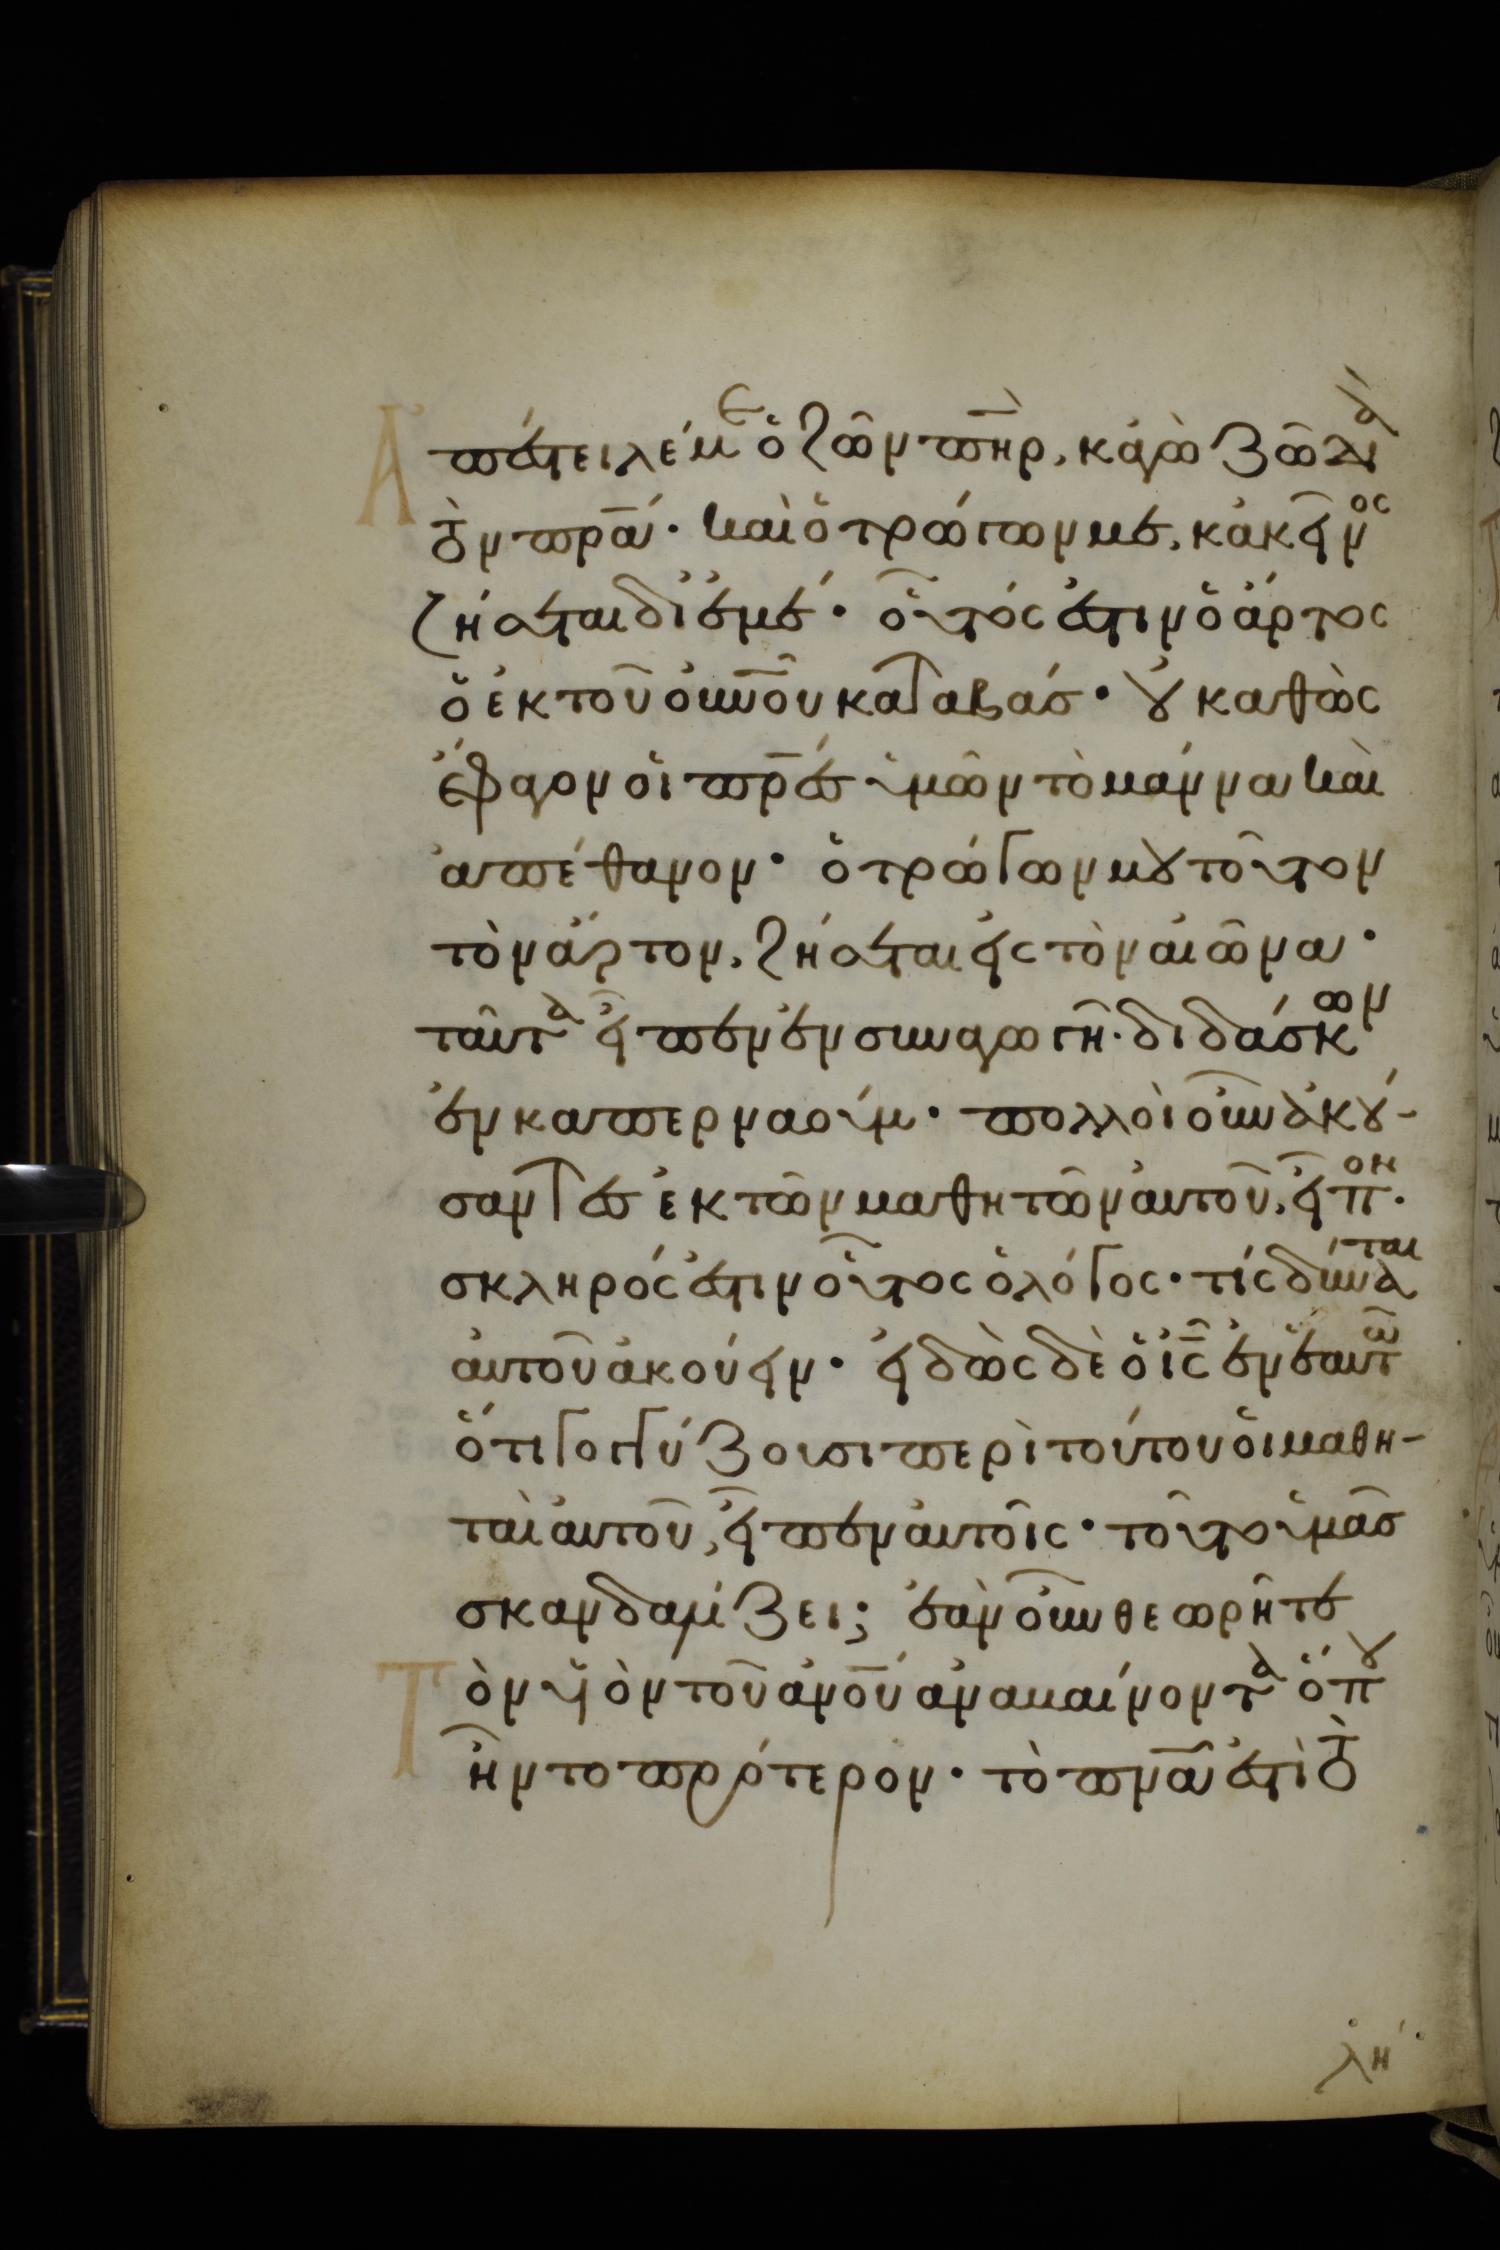 Ἀπέστειλέ με ὁ ζῶν πη̅ρ, κἀγὼ ζῶ διὰ
τὸν πρ̅α· καὶ ὁ τρώγων με, κἀκεῖνος
ζήσεται δι ἐμέ· οὗτός ἐστιν ὁ ἄρτος
ὁ ἐκ τοῦ οὐν̅οῦ καταβάς· οὐ καθὼς
ἔφαγον οἱ πρ̅ες ὑμῶν τὸ μάννα καὶ
ἀπέθανον· ὁ τρώγων μου τοῦτον
τὸν ἄρτον, ζήσεται εἰς τὸν αἰῶνα·
ταῦτα εἶπεν ἐν συναγωγῆ· διδάσκων
ἐν καπερναούμ· πολλοὶ οὖν ἀκού-
σαντες ἐκ τῶν μαθητῶν αὐτοῦ, εἶπον·
σκληρός ἐστιν οὗτος ὁ λόγος· τίς δύναται
αὐτοῦ ἀκούειν· εἰδὼς δὲ ὁ ι̅ς ἐν ἑαυτῶ
ὅτι γογγύζουσι περὶ τούτου οἱ μαθη-
ταὶ αὐτοῦ, εἶπεν αὐτοῖς· τοῦτο ὑμᾶς
σκανδαλίζει; ἐὰν οὖν θεωρῆτε
Τὸν υἱὸν τοῦ ἀν̅ου ἀναβαίνοντα ὅπου
ἦν το πρότερον· τὸ πν̅α ἐστὶ τὸ
λη